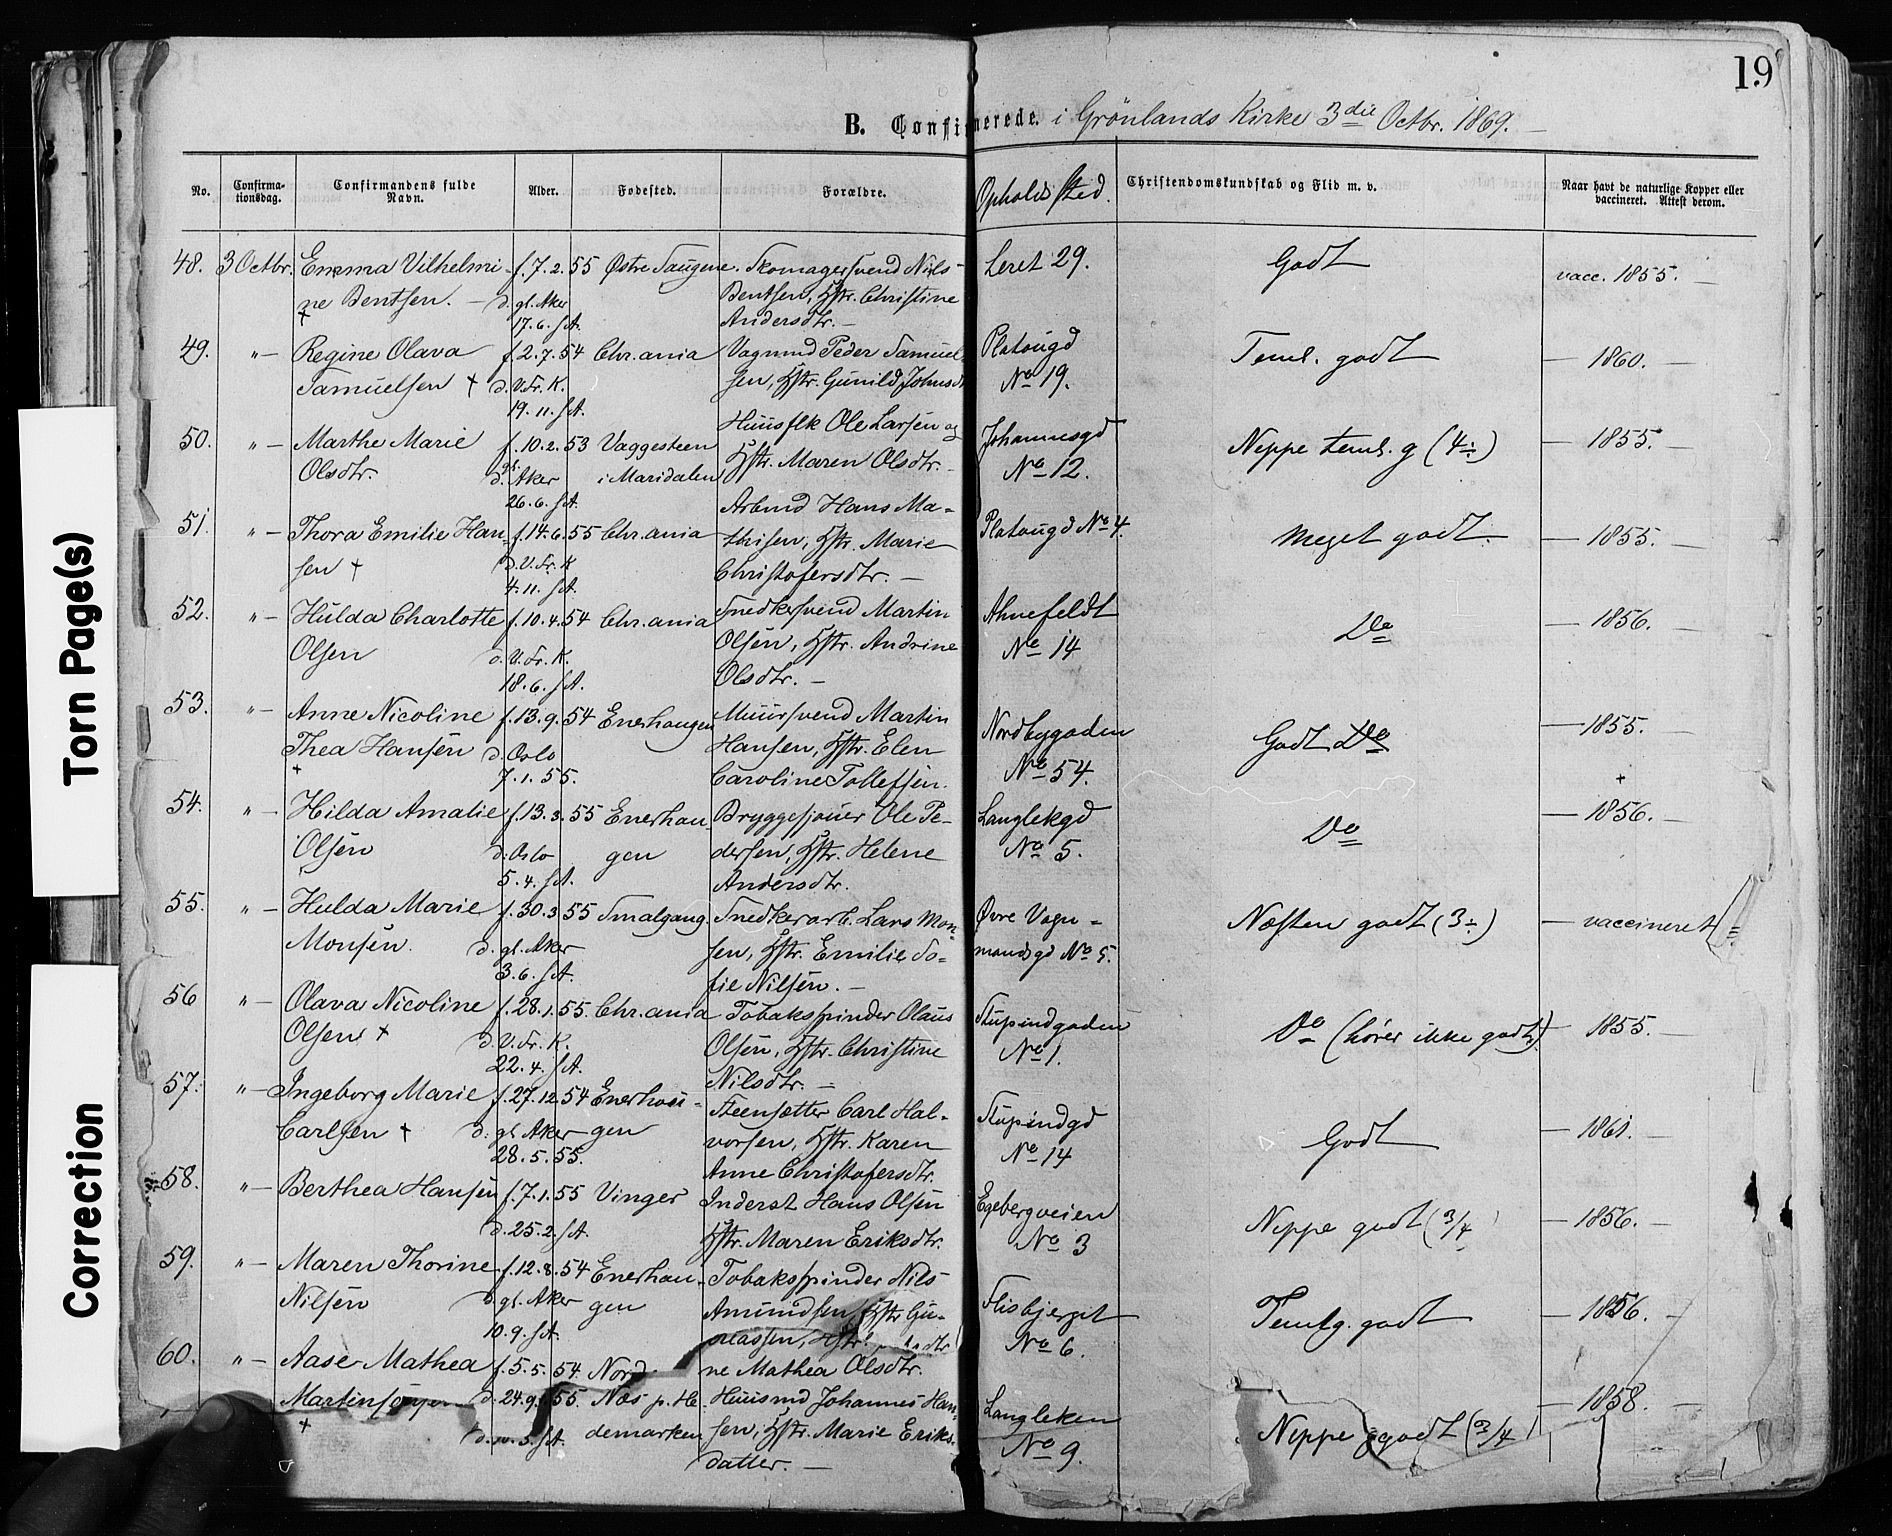 19
B. Confirmerede. i Grönlands Kirke 3die Octbr. 1869.
No. Confirma-tionsdag. Confirmandens fulde Navn. Alder. Fødested. Forældre. Opholdssted. Christendomskundskab og Flid m. v. Naar havt de naturlige Kopper eller vaccineret. Attest derom.
48. 3 Octbr. Emma Vilhelmi- f. 7. 2. 55 Østre Saugene. Skomagersvend Nils Leret 29. Godt vacc. 1855. —
ne Bentsen. — d. gl. Aker Bentsen, Hstr. Christine
+ 17. 6. s A. Andersdtr. —
49. " — Regine Olava f. 2. 7. 54 Chr.ania Vagnmd Peder Samuel Platougd Teml. godt — 1860. —
Samuelsen + d. V. Fr. K. sen, Hstr. Gunild Johnsd No 19.
19. 11. s A.
50. " — Marthe Marie f. 10. 2. 53 Vaggesteen Huusflk Ole Larsen og Johannesgd Neppe teml. g (4÷) — 1855. —
Olsdtr. d. gl. Aker i Maridalen Hstr. Maren Olsdtr. — No 12.
26. 6. s A.
51. " — Thora Emilie Han- f. 14. 6. 55 Chr.ania Arbmd Hans Ma- Platougd No 4. Meget godt. — 1855. —
sen + d. V. Fr. K thisen, Hstr. Marie
4. 11. s A. Christofersdtr. —
52. " — Hulda Charlotte f. 10. 4. 54 Chr.ania Snedkersvend Martin Ahnefeldt Do — 1856. —
Olsen d. V. Fr. K. Olsen, Hstr. Andrine No 14
18. 6. s A. Olsdtr. —
53. " — Anne Nicoline f. 13. 9. 54 Enerhaugen Muursvend Martin Nordbygaden Godt Do — 1855. —
Thea Hansen d. Oslo Hansen, Hstr. Elen No 54.
+ 7. 1. 55. Caroline Tollefsen. +
54. " — Hilda Amalie f. 13. 3. 55 Enerhau- Bryggesjouer Ole Pe- Langlekgd Do — 1856. —
Olsen d. Oslo gen dersen, Hstr. Helene No 5.
5. 4. s A. Andersdtr.
55. " — Hulda Marie f. 30. 3 55 Smalgang. Snedkerarb. Lars Mon- Øvre Vogn- Næsten godt (3÷) — vaccineret
Monsen. d. gl. Aker sen, Hstr. Emilie So- mandsgd No 5.
3. 6. s A. fie Nilsen. —
56 " — Olava Nicoline f. 28. 1. 55. Chr.ania Tobakspinder Olaus Stupindgaden Do (hører ikke godt) — 1855. —
Olsen + d. V. Fr. K. Olsen, Hstr. Christine No 1.
22. 4. s A. Nilsdtr. —
57. " — Ingeborg Marie f. 27. 12. 54 Enerhau- Steensætter Carl Hal- Stupindgd Godt — 1861. —
Carlsen + d. gl. Aker gen vorsen, Hstr. Karen No 14
28. 5. 55. Anne Christofersdtr.
58. " — Berthea Hansen f. 7. 1. 55 Vinger Inderst Hans Olsen Egebergveien Neppe godt (3/4) — 1856. —
d. 25. 2. s A. Hstr. Maren Eriksdtr. No 3
59. " — Maren Thorine f. 12. 8. 54 Enerhau- Tobakspinder Nils Flisbjerget Temlg. godt — 1856.
Nilsen d. gl. Aker gen Amundsen, Hstr Gu- No 6.
10. 9. s A.
60. " — Aase Mathea f. 5. 5. 54. Nord ne Mathea Olsdtr.
Martinsen d. 24. 9. 55. Næs p. He- Huusmd Johannes Han- Langleken Neppe godt (3/4) — 1858. —
+ s A. demarken sen, Hstr. Marie Eriks- No 9.
datter. —
Torn Page(s)
Correction